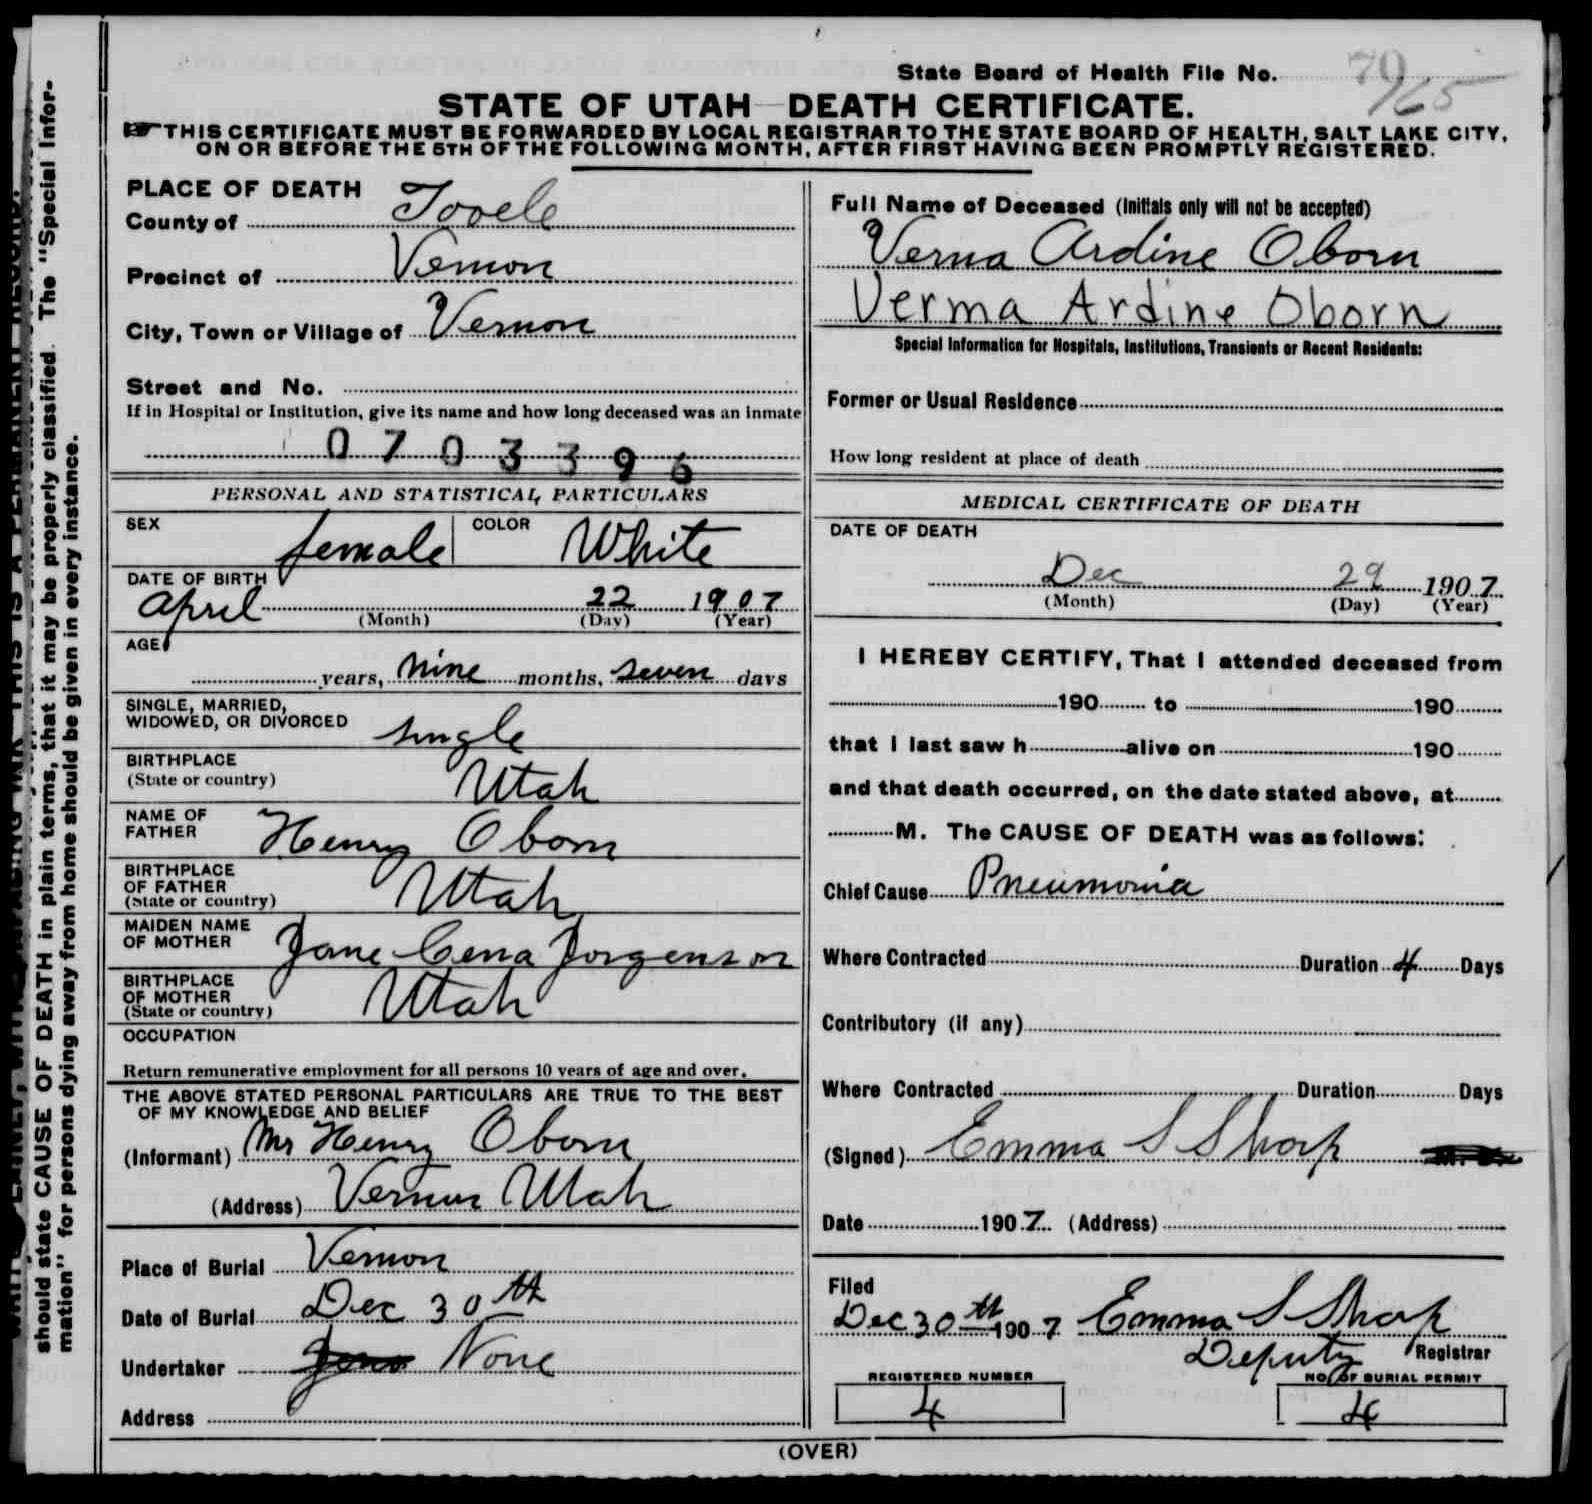 should state CAUSE OF DEATH in plain terms, that it may be properly classified. The "Special Infor-
mation" for persons dying away from home should be given in every instance.
State Board of Health File No. 79/65
STATE OF UTAH—DEATH CERTIFICATE.
THIS CERTIFICATE MUST BE FORWARDED BY LOCAL REGISTRAR TO THE STATE BOARD OF HEALTH, SALT LAKE CITY,
ON OR BEFORE THE 5TH OF THE FOLLOWING MONTH, AFTER FIRST HAVING BEEN PROMPTLY REGISTERED.
PLACE OF DEATH
County of Tooele
Precinct of Vernon
City, Town or Village of Vernon
Street and No.
If in Hospital or Institution, give its name and how long deceased was an inmate
0703396
PERSONAL AND STATISTICAL PARTICULARS
SEX female COLOR White
DATE OF BIRTH
April 22 1907
(Month) (Day) (Year)
AGE
years, nine months, seven days
SINGLE, MARRIED,
WIDOWED, OR DIVORCED single
BIRTHPLACE
(State or country) Utah
NAME OF
FATHER Henry Oborn
BIRTHPLACE
OF FATHER
(State or country) Utah
MAIDEN NAME
OF MOTHER Jane Cena Jorgenson
BIRTHPLACE
OF MOTHER
(State or country) Utah
OCCUPATION
Return remunerative employment for all persons 10 years of age and over.
THE ABOVE STATED PERSONAL PARTICULARS ARE TRUE TO THE BEST
OF MY KNOWLEDGE AND BELIEF
(Informant) Mr Henry Oborn
(Address) Vernon Utah
Place of Burial Vernon
Date of Burial Dec 30th
Undertaker None
Address
Full Name of Deceased (Initials only will not be accepted)
Verna Ardine Oborn
Verma Ardine Oborn
Special Information for Hospitals, Institutions, Transients or Recent Residents:
Former or Usual Residence
How long resident at place of death
MEDICAL CERTIFICATE OF DEATH
DATE OF DEATH
Dec 29 1907
(Month) (Day) (Year)
I HEREBY CERTIFY, That I attended deceased from
190 to 190
that I last saw h alive on 190
and that death occurred, on the date stated above, at
M. The CAUSE OF DEATH was as follows:
Chief Cause Pneumonia
Where Contracted Duration 4 Days
Contributory (if any)
Where Contracted Duration Days
(Signed) Emma S Sharp
Date 1907 (Address)
Filed
Dec 30th 1907 Emma S Sharp
Deputy Registrar
REGISTERED NUMBER NO. OF BURIAL PERMIT
4 4
(OVER)